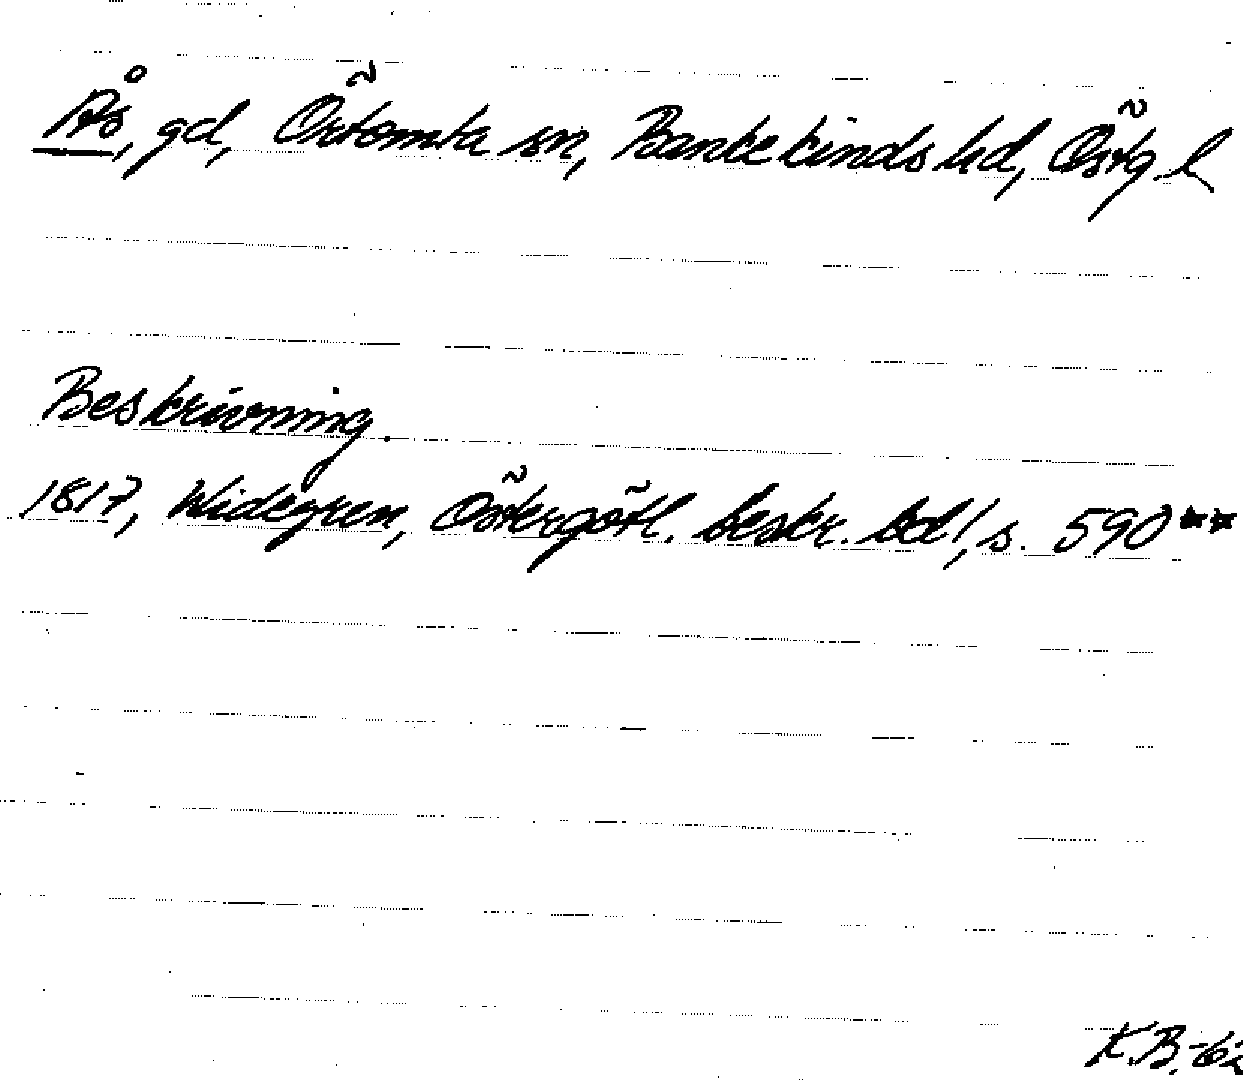 Ås, gd, Örtomta sn, Bankekinds hd, Östg. l
Beskrivning.
1817, Widegren, Östergötl. beskr. bd 1, s. 590**
K.B.-62